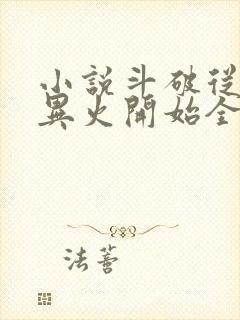 小説斗破從
異火開始全
法蓍